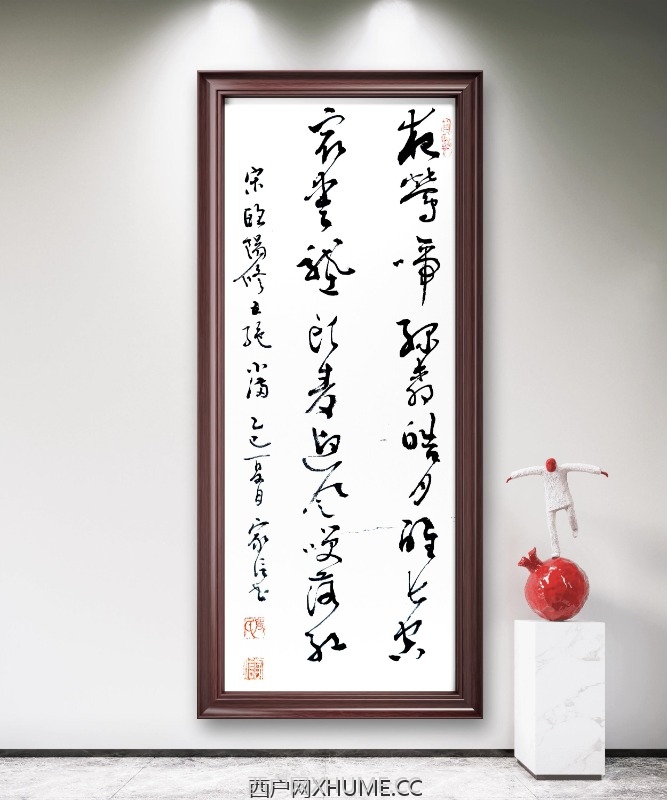 夜莺啼绿柳皓月醒长空
最爱垄头麦迎风笑落红
宋欧阳修五绝小满乙巳夏日家信书
西户网XHUME.CC